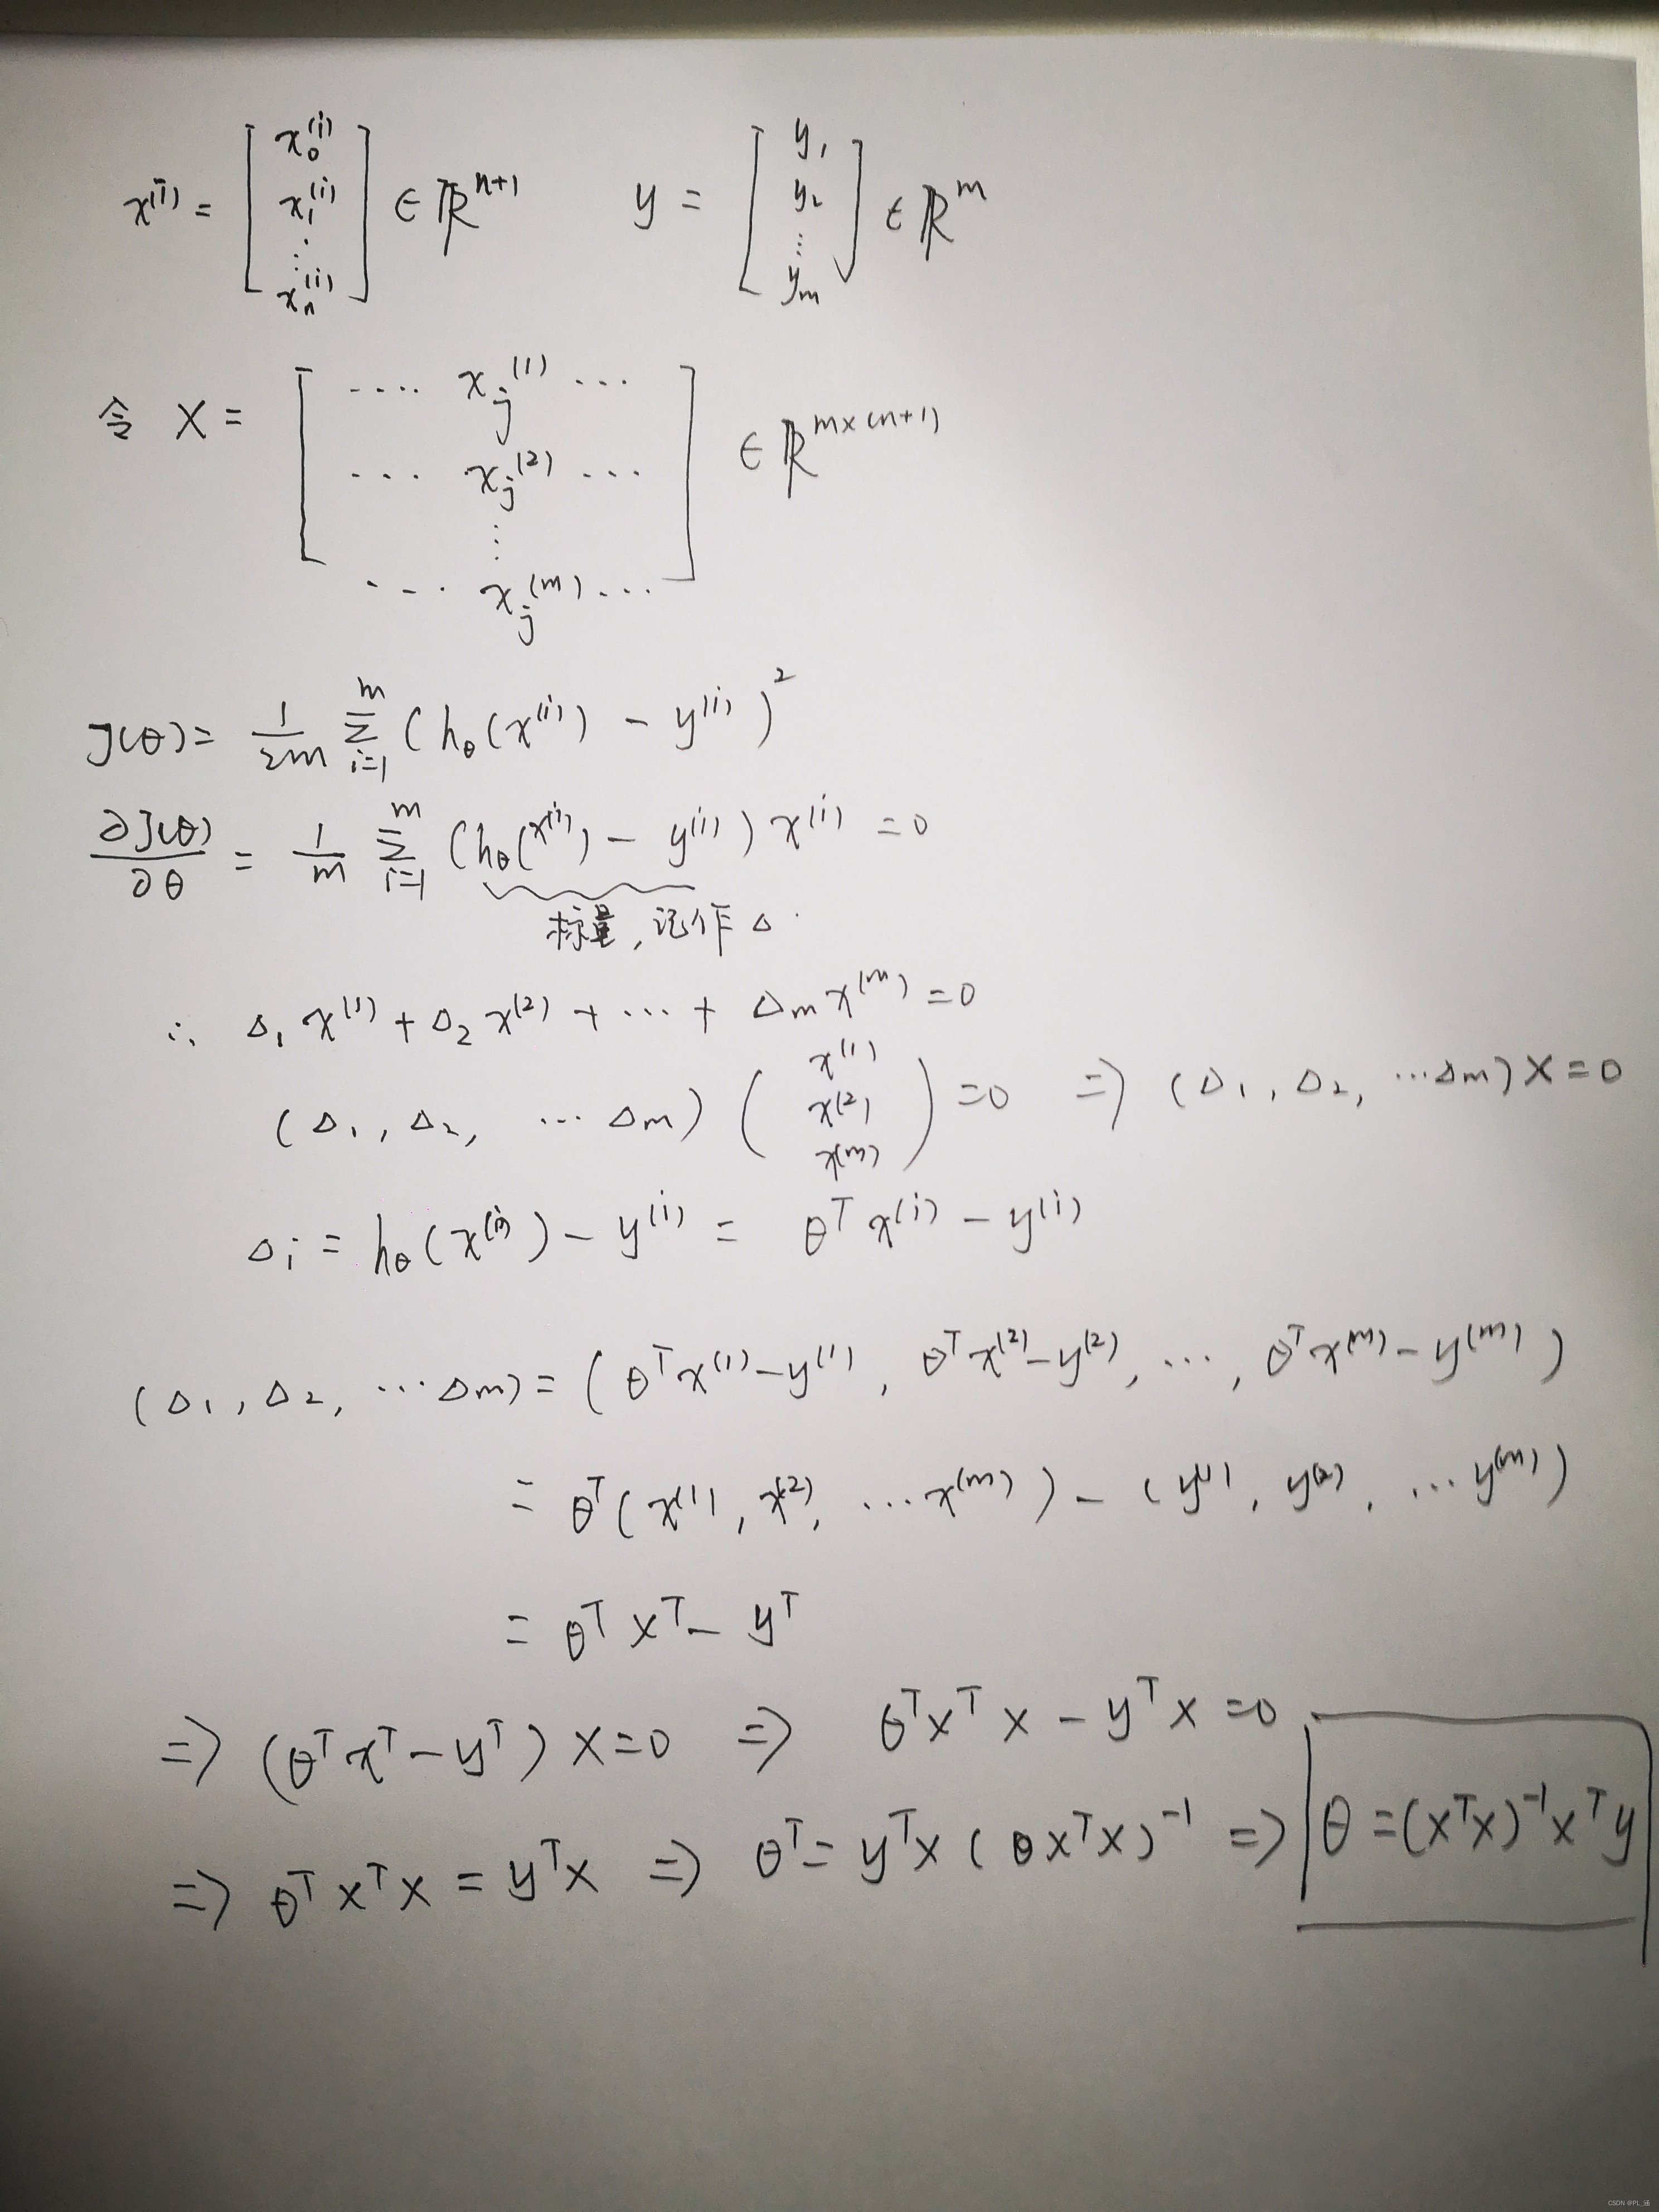 x^(i) = [ x_0^(i) x_1^(i) ⋮ x_n^(i) ] ∈ ℝ^{n+1}    y = [ y_1 y_2 ⋮ y_m ] ∈ ℝ^m
令 X = [ .... x_j^(1) ...
... x_j^(2) ...
⋮
... x_j^(m) ... ] ∈ ℝ^{m×(n+1)}
J(θ) = 1/2m Σ_{i=1}^m (h_θ(x^(i)) − y^(i))^2
∂J(θ)/∂θ = 1/m Σ_{i=1}^m (h_θ(x^(i)) − y^(i)) x^(i) = 0
标量,记作 Δ
∴ Δ_1 x^(1) + Δ_2 x^(2) + ... + Δ_m x^(m) = 0
(Δ_1, Δ_2, ... Δ_m) ( x^(1) x^(2) x^(m) ) = 0 ⇒ (Δ_1, Δ_2, ... Δ_m) X = 0
Δ_i = h_θ(x^(i)) − y^(i) = θ^T x^(i) − y^(i)
(Δ_1, Δ_2, ... Δ_m) = (θ^T x^(1) − y^(1), θ^T x^(2) − y^(2), ..., θ^T x^(m) − y^(m))
= θ^T (x^(1), x^(2), ... x^(m)) − (y^(1), y^(2), ... y^(m))
= θ^T X^T − y^T
⇒ (θ^T X^T − y^T) X = 0 ⇒ θ^T X^T X − y^T X = 0
⇒ θ^T X^T X = y^T X ⇒ θ^T = y^T X (θ X^T X)^{-1} ⇒ θ = (X^T X)^{-1} X^T y
CSDN @PL_涵